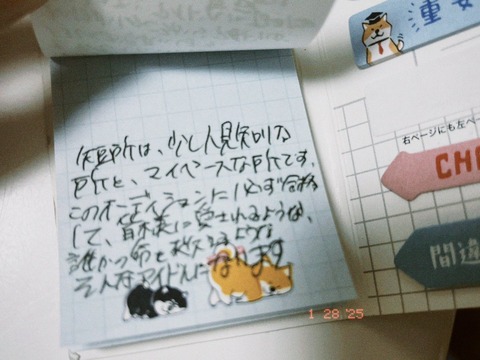 短所は、少し人見知りな
所と、マイペースな所です。
このオーディションに必ず合格
して、皆様に愛されるような、
誰かの命を救えるような
そんなアイドルになります
重要
右ページにも左ペー
CHE
間違
1 28 '25